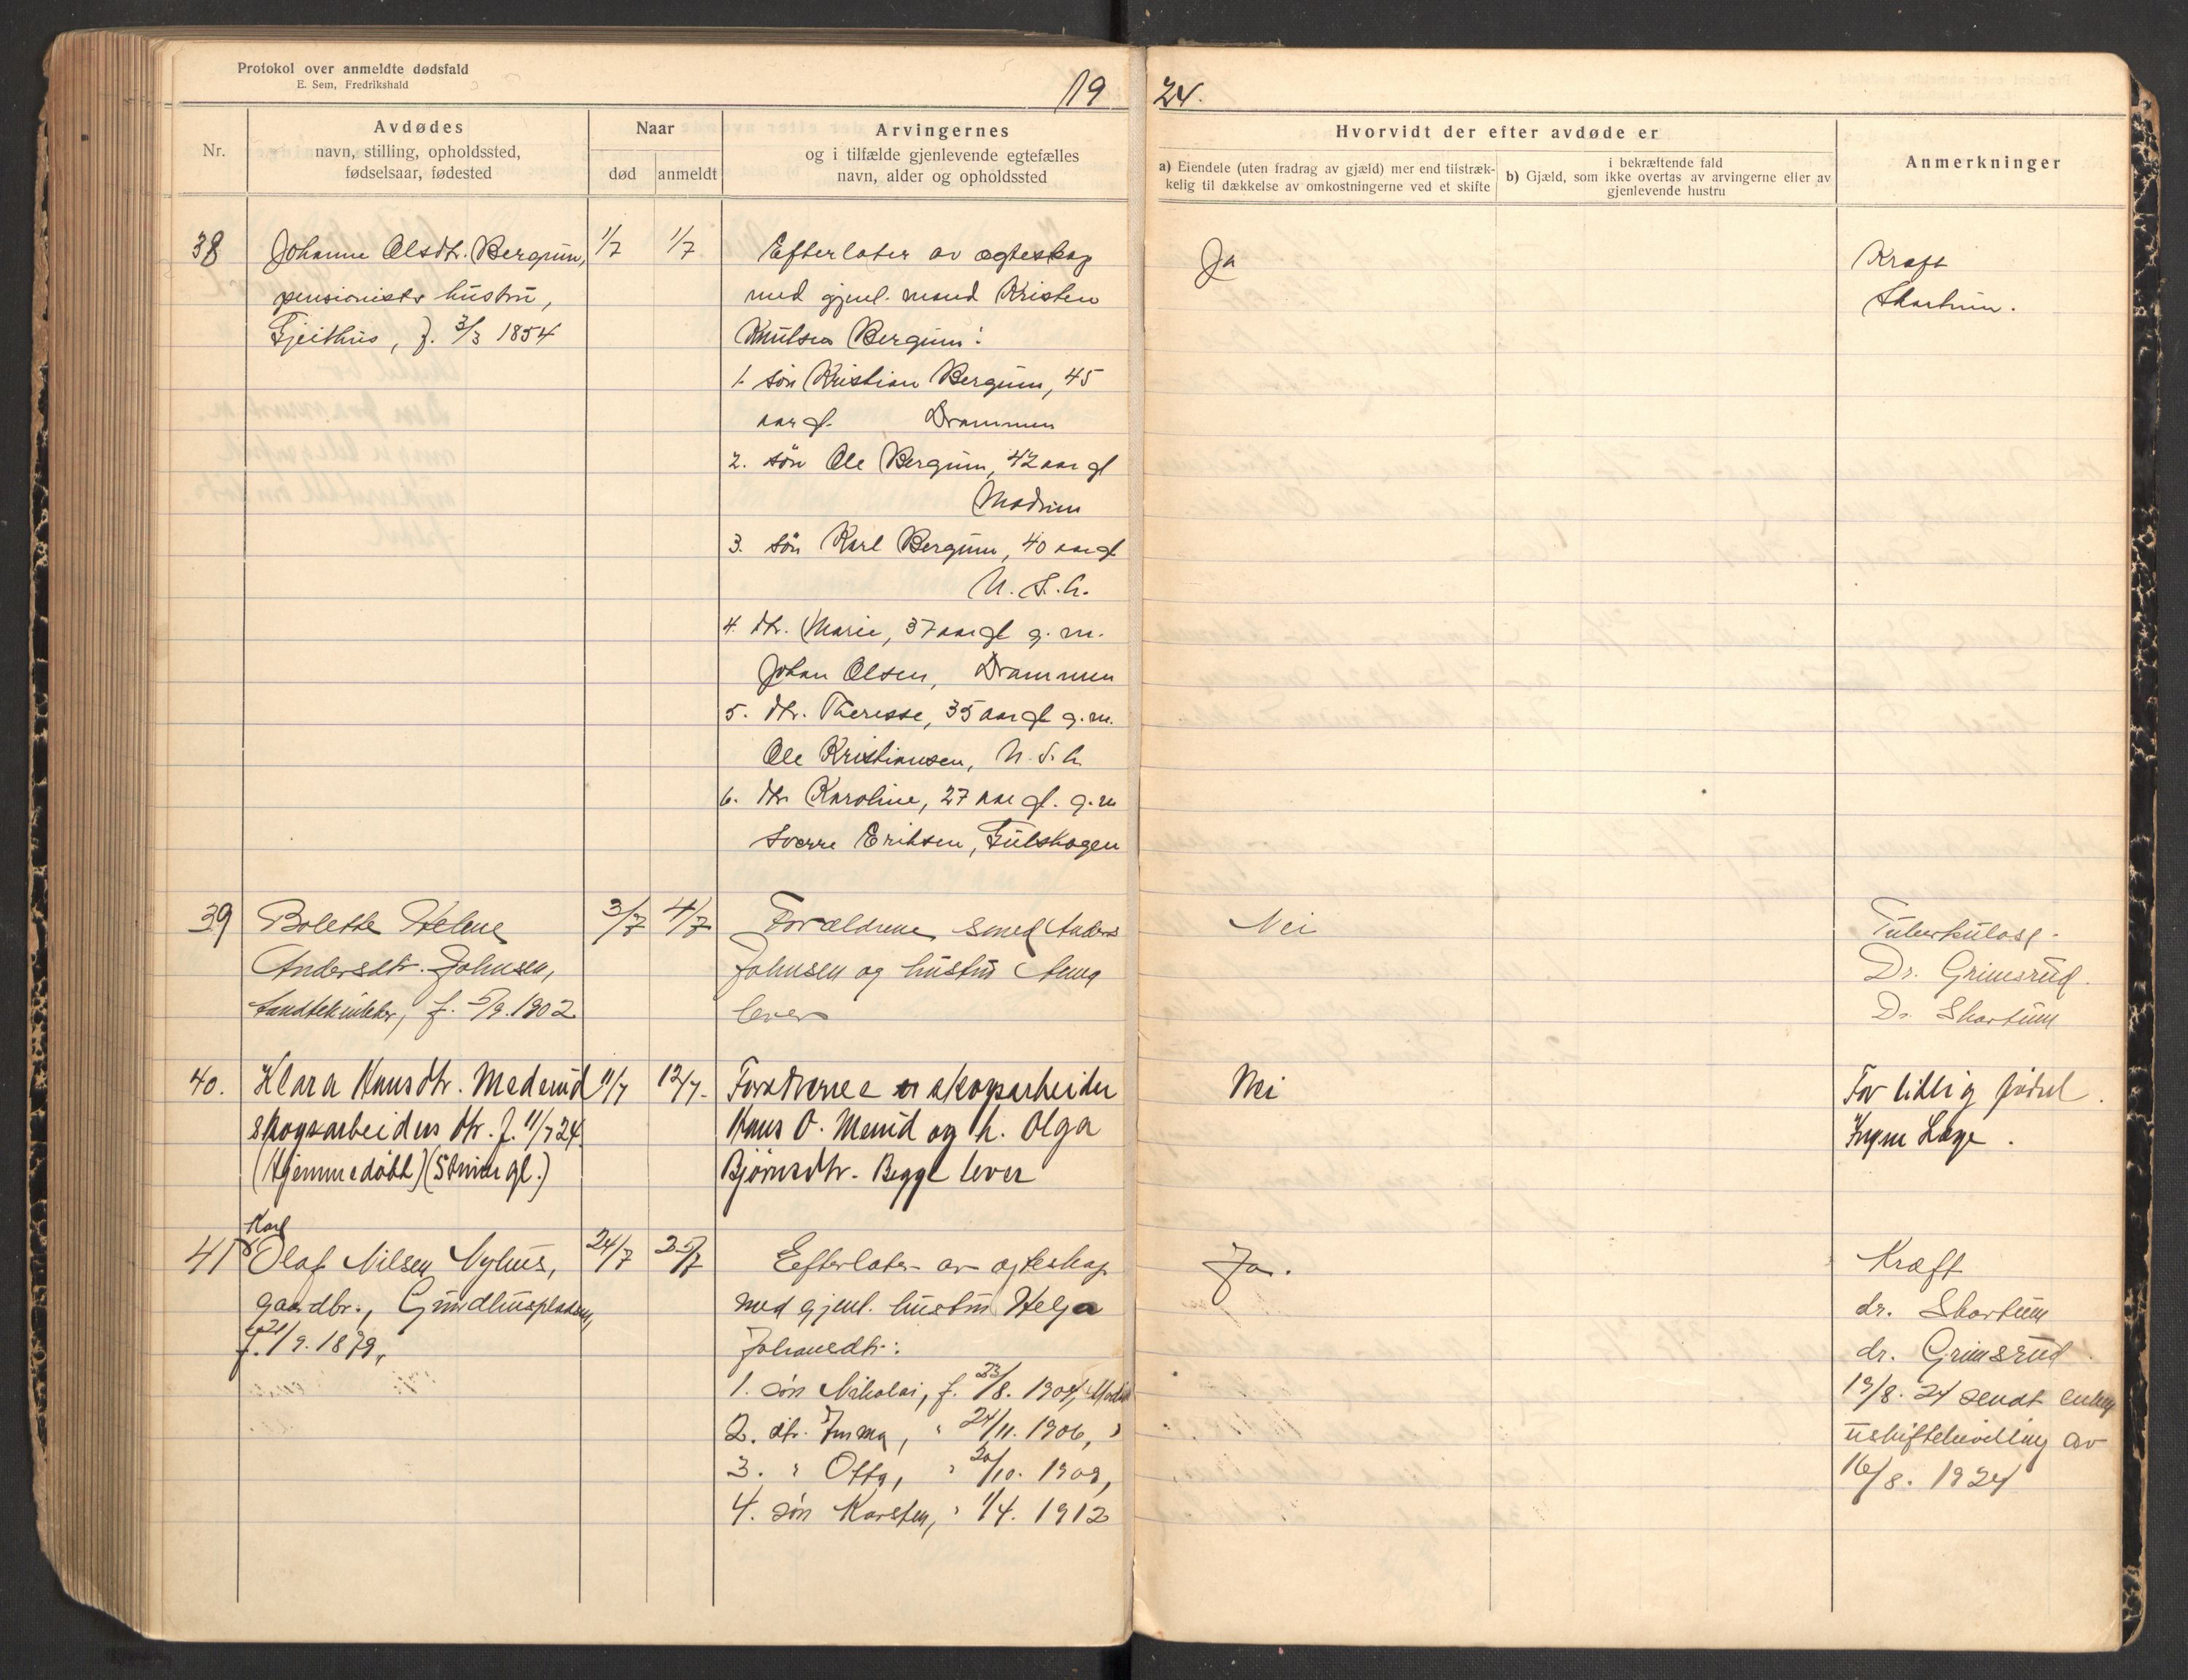 Protokol over anmeldte dødsfald
E. Sem, Fredrikshald
19 24.
Nr.
Avdødes
navn, stilling, opholdssted,
fødselsaar, fødested
Naar
død
anmeldt
Arvingernes
og i tilfælde gjenlevende egtefælles
navn, alder og opholdssted
Hvorvidt der efter avdøde er
a) Eiendele (uten fradrag av gjæld) mer end tilstræk-
kelig til dækkelse av omkostningerne ved et skifte
i bekræftende fald
b) Gjæld, som ikke overtas av arvingerne eller av
gjenlevende hustru
Anmerkninger
38
Johanne Olsdtr. Bergum,
pensionists hustru,
Gjeithus, f. 3/3 1854
1/7
1/7
Efterlater av ægteskap
med gjenl. mand Kristen
Knutsen Bergum:
1. søn Kristian Bergum, 45
aar gl. Drammen
2. søn Ole Bergum, 42 aar gl
Modum
3. søn Karl Bergum, 40 aar gl
U. S. A.
4. dtr. Marie, 37 aar gl g. m.
Johan Olsen, Drammen
5. dtr. Theresse, 35 aar gl g. m.
Ole Kristiansen, U. S. A
6. dtr Karoline, 27 aar gl. g. m
Sverre Eriksen, Gulskogen
Ja
Kræft
Skartum.
39
Bolette Helene
Andersdtr. Johnsen,
f. 5/9. 1902
3/7
4/7
Forældrene, smed Anders
Johnsen og hustru Anna
lever
Nei
Tuberkulose.
Dr. Grimsrud.
Dr. Skartum
40.
Klara Hansdtr.
skogsarbeiders dtr. f. 11/7 24.
(Hjemmedøbt) (5 min gl.)
11/7
12/7.
Forældrene skogsarbeider
Hans O. og h. Olga
Bjørnsdtr. Begge lever
Nei
For tidlig fødsel.
Ingen Læge.
41
Karl
Olaf Nilsen Nyhus,
gaardbr., Grundhuspladsen,
f. 21/9. 1879,
24/7
25/7
Efterlater av ægteskap
med gjenl. hustru Helga
Johansdtr:
1. søn Nikolai, f. 23/8. 1904, Modum
2. dtr. Imma, " 24/11. 1906, "
3. " Otta, " 20/10. 1909,
4. søn Karsten, " 1/4. 1912
Ja.
Kræft
dr. Skartum
dr. Grimsrud.
19/8. 24 sendt enken
uskiftebevilling av
16/8. 1924